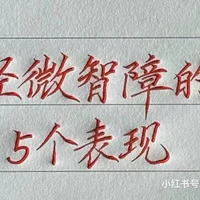 轻微智障的
5个表现
小红书号